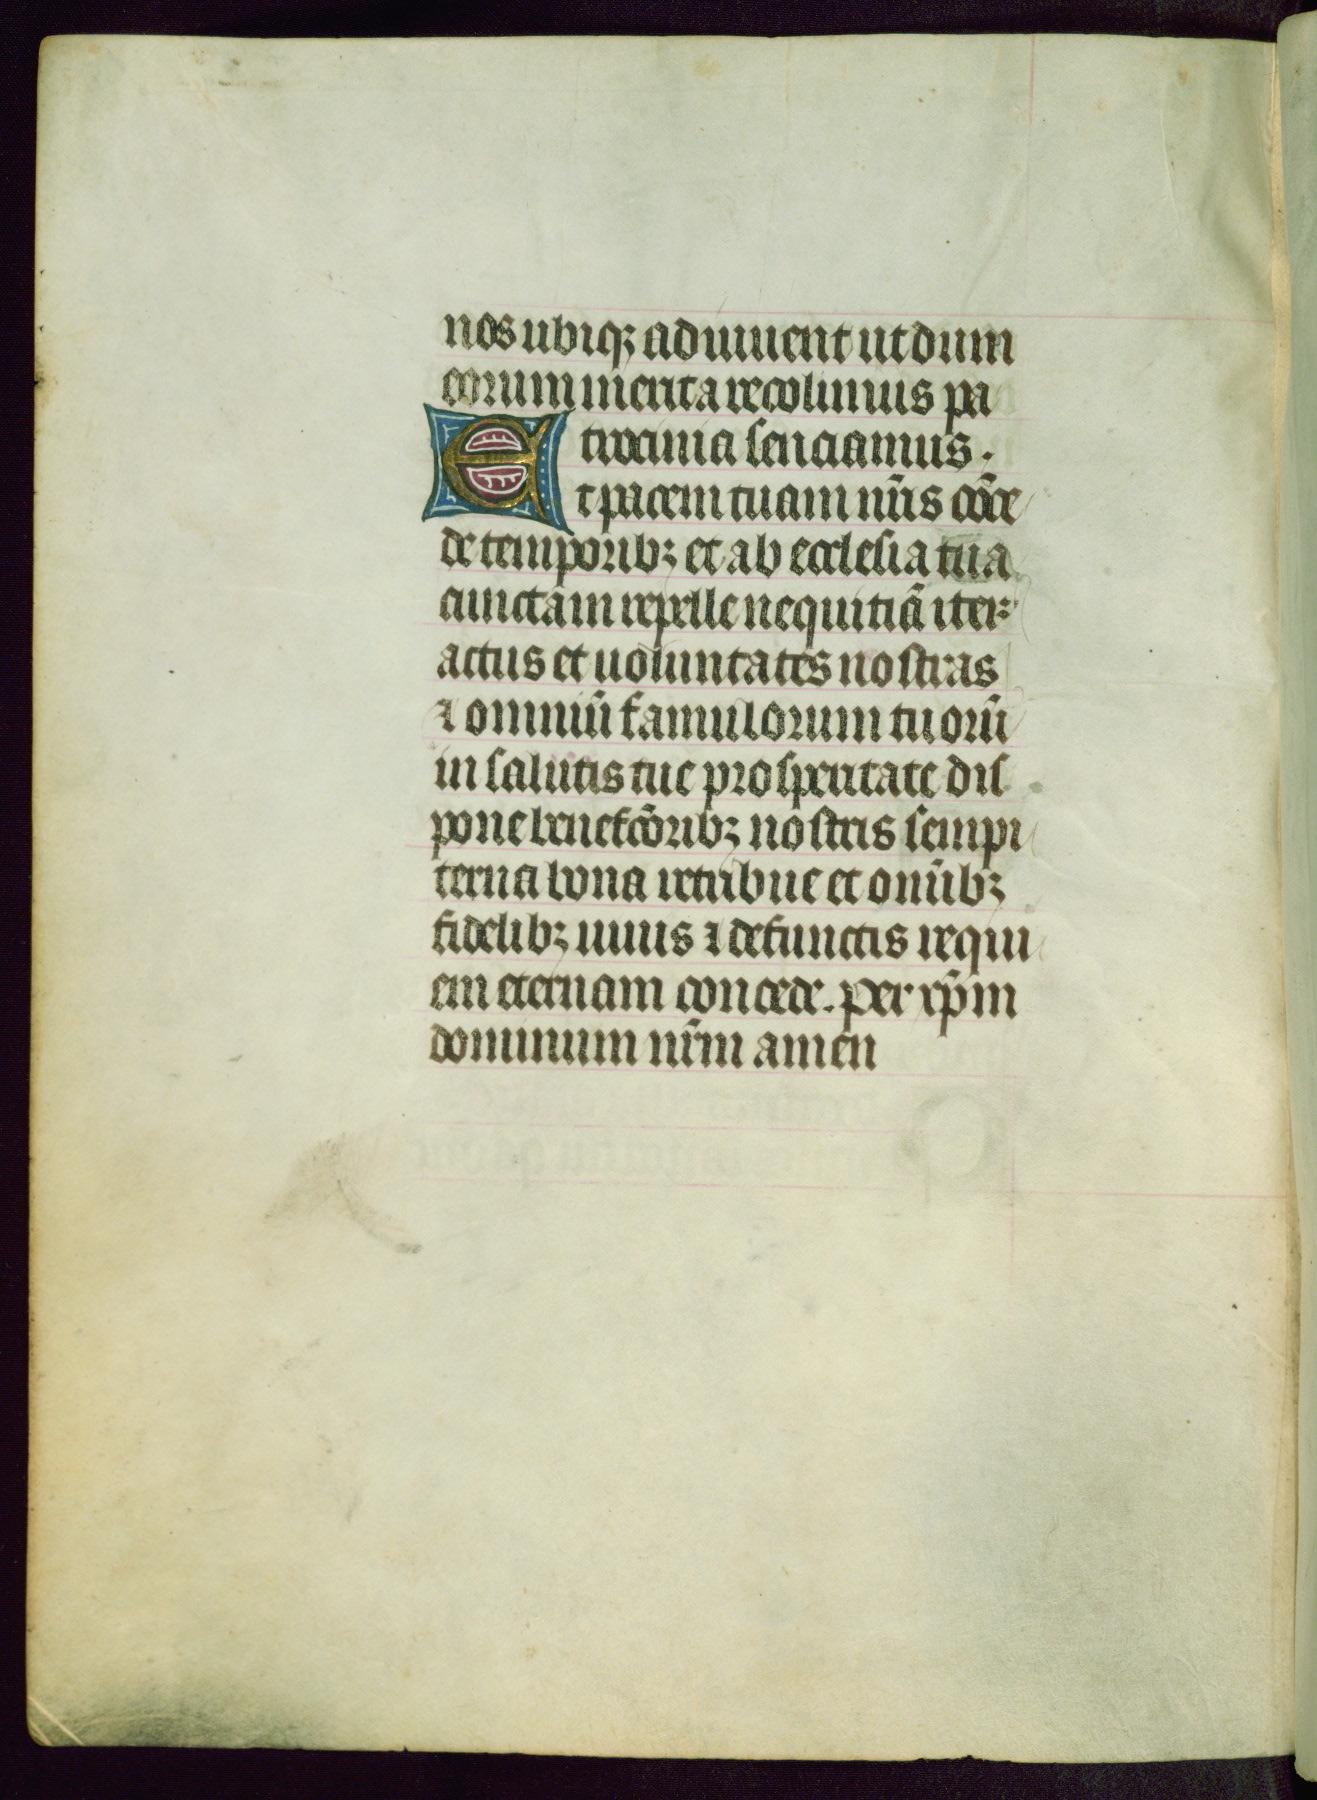 nos ubiqꝫ adiuuent ut dum
eorum merita recolimus pa
trocinia senciamus.
Et pacem tuam nr̄is cōce
de temporibꝫ et ab ecclesia tua
cunctam repelle nequitiā iter
actus et uoluntates nostras
⁊ omniū famulorum tuorū
in salutis tue prosperitate dis
pone benefc̄oribꝫ nostris sempi
terna bona retribue et om̄ibꝫ
fidelibꝫ uiuis ⁊ defunctis requi
em eternam concede. per xp̄m
dominum nr̄m amen